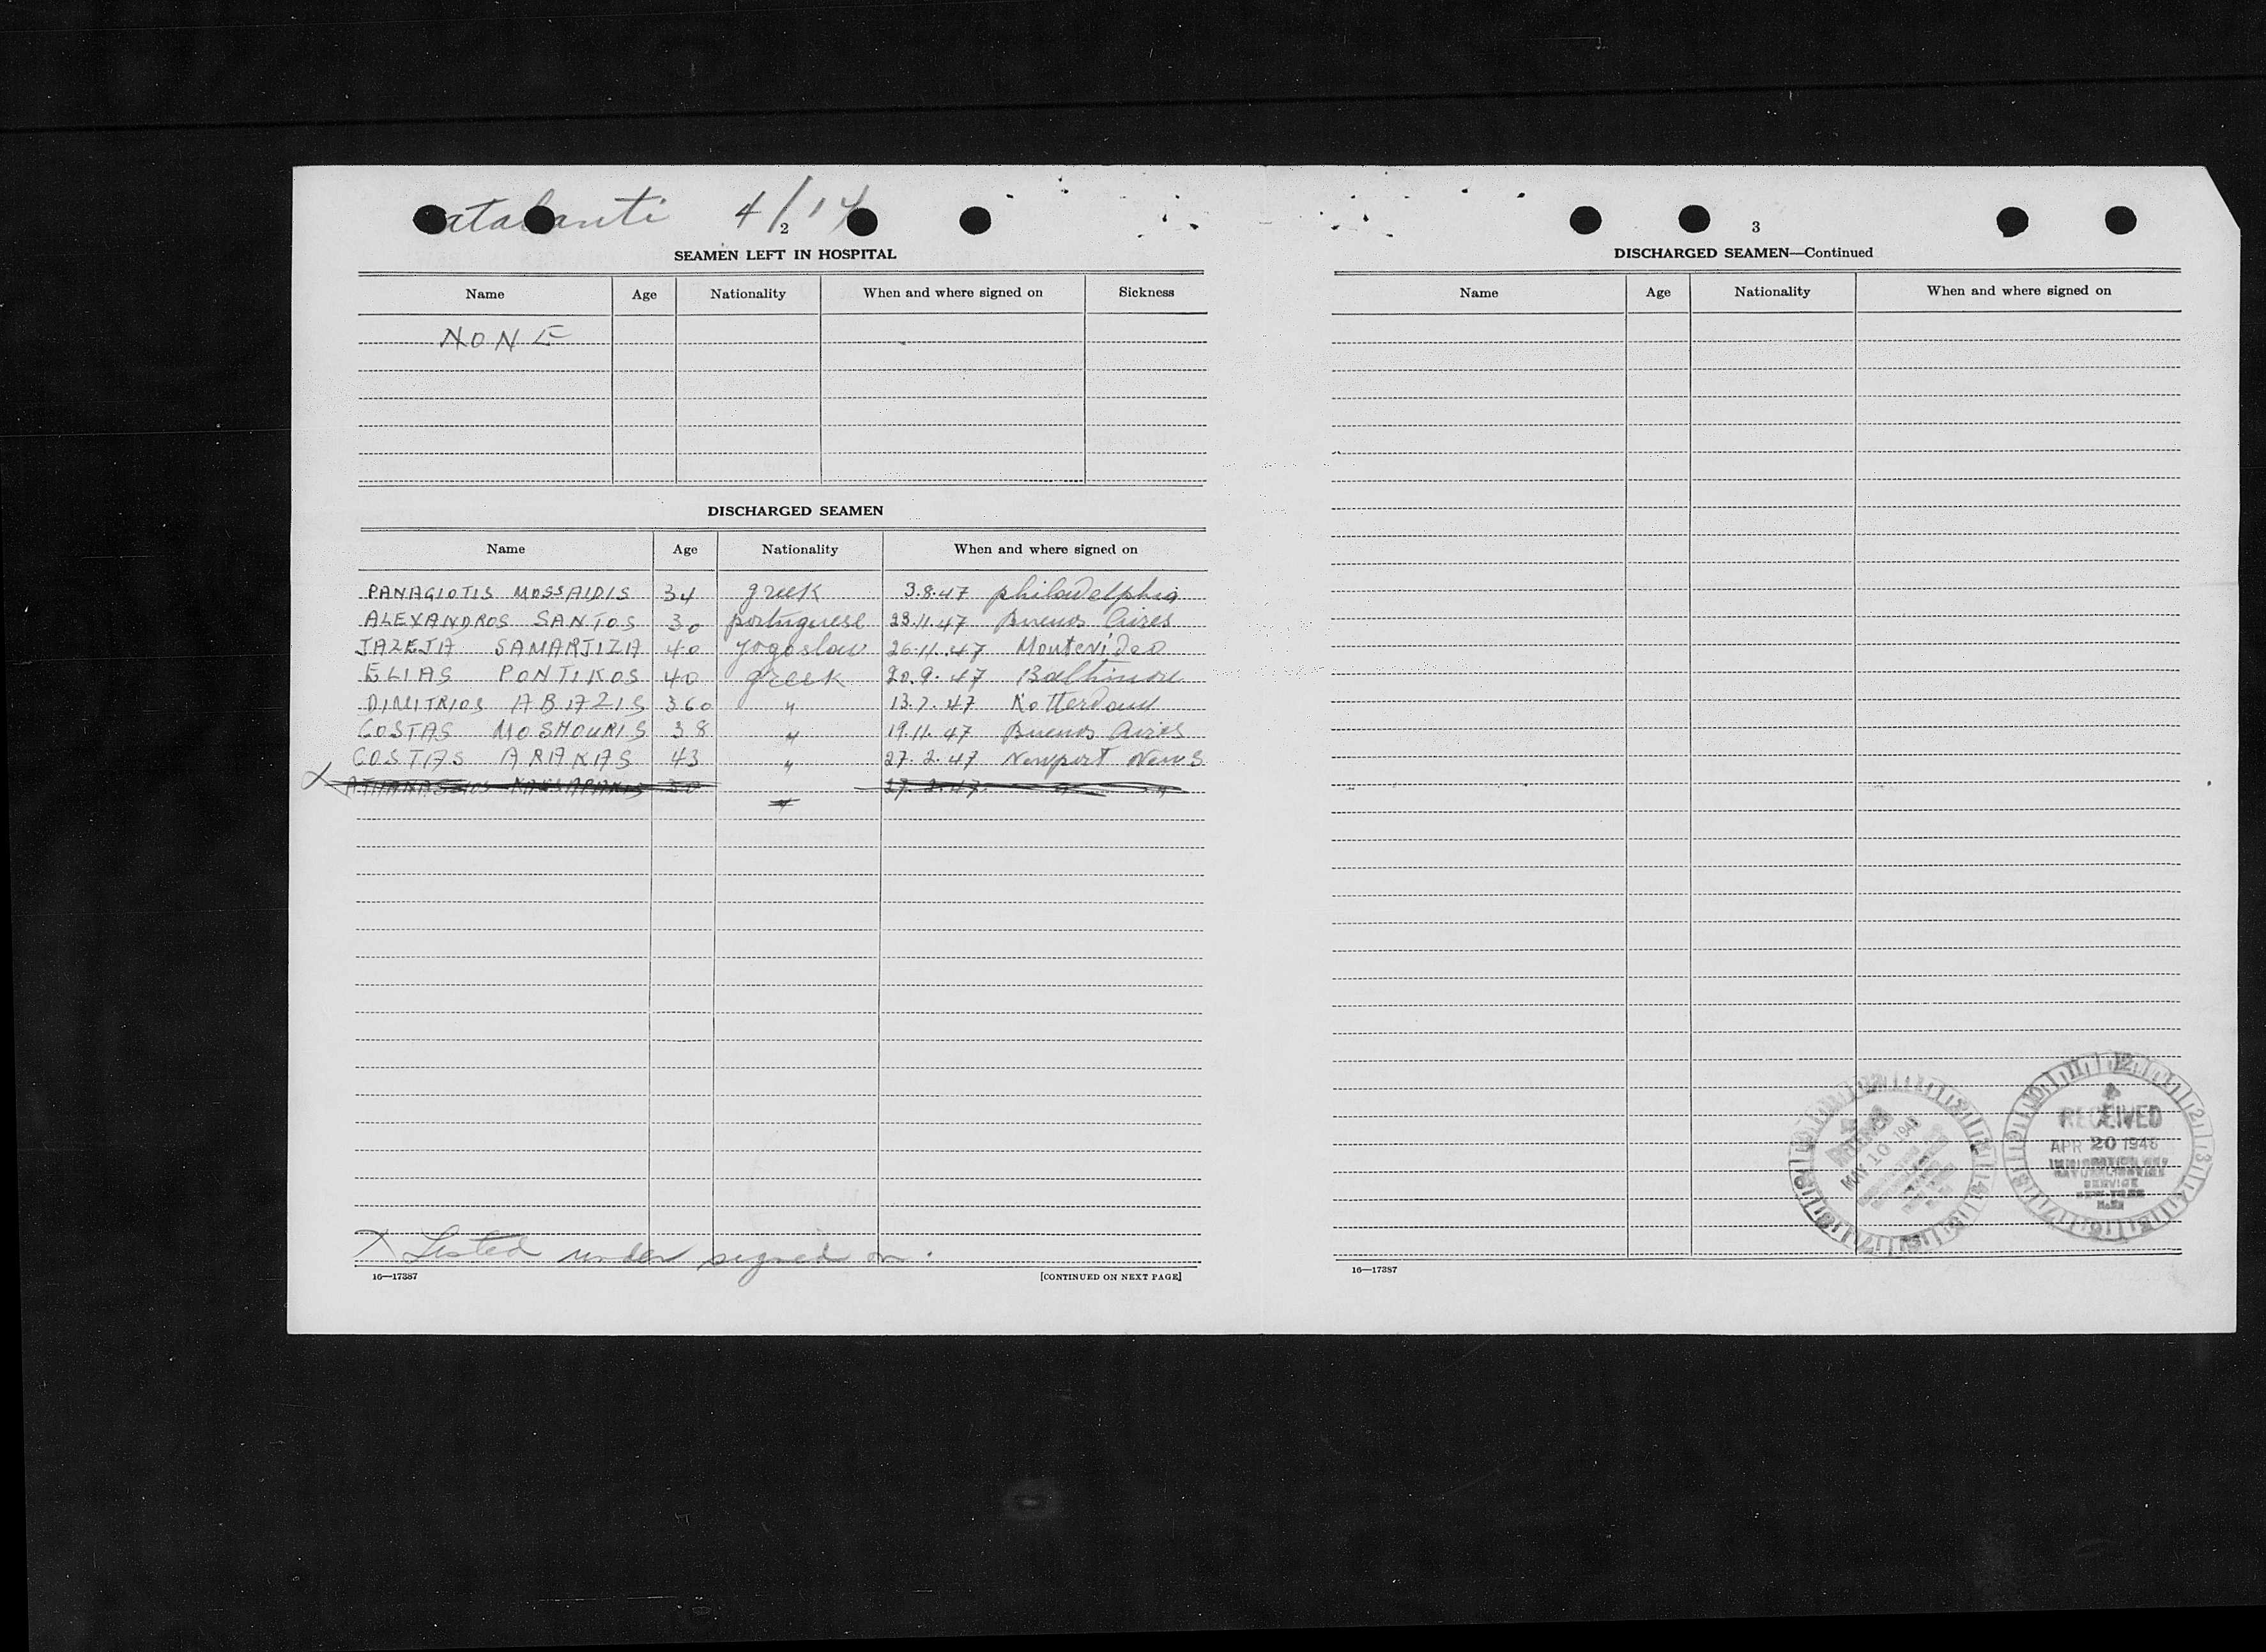 atalanti 4/14
2
SEAMEN LEFT IN HOSPITAL
Name Age Nationality When and where signed on Sickness
NONE
DISCHARGED SEAMEN
Name Age Nationality When and where signed on
PANAGIOTIS MOSSAIDIS 34 greek 3.8.47 philadelphia
ALEXANDROS SANTOS 30 portuguese 23.11.47 Buenos Aires
JAZEJA SAMARJIZA 40 yogoslav 26.11.47 Montevideo
ELIAS PONTIKOS 40 greek 20.9.47 Baltimore
DIMITRIOS ABAZIS 360 " 13.7.47 Rotterdam
COSTAS MOSHOURIS 38 " 19.11.47 Buenos Aires
COSTAS ARAKAS 43 " 27.2.47 Newport News
X ATHANASSIOS 27.2.47 " "
X Listed under signed on.
16—17387
[CONTINUED ON NEXT PAGE]
3
DISCHARGED SEAMEN—Continued
Name Age Nationality When and where signed on
MAY 10 1948
RECEIVED
APR 20 1948
SERVICE
16—17387